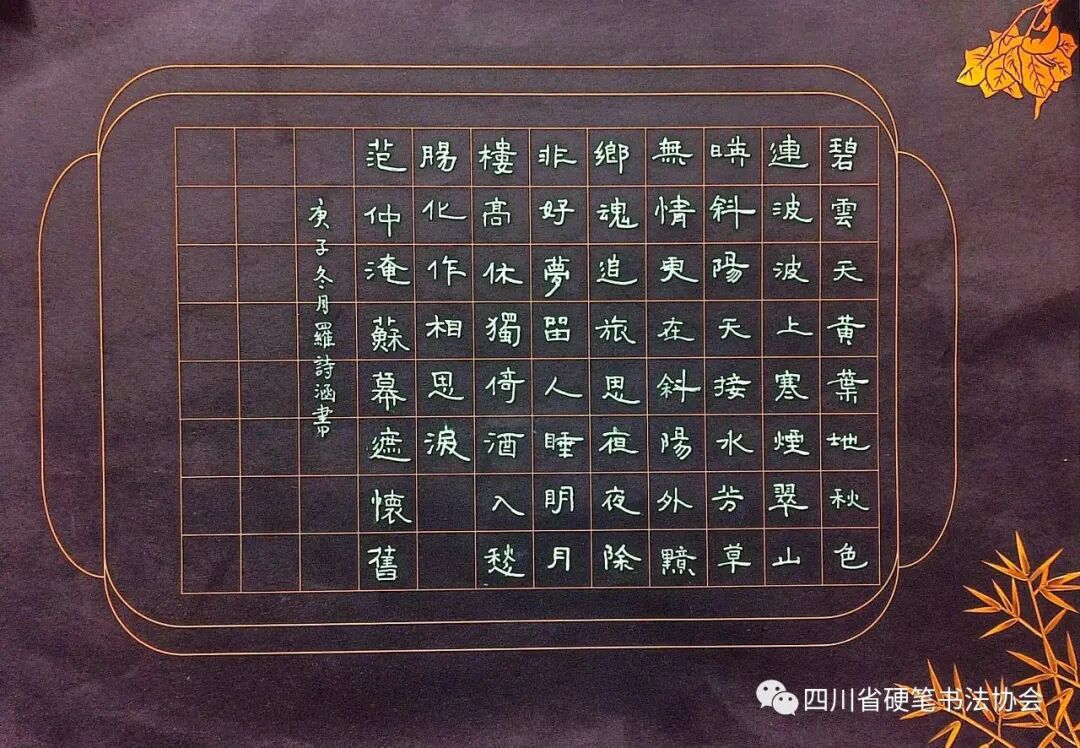 碧雲天黃葉地秋色
連波波上寒煙翠山
映斜陽天接水芳草
無情更在斜陽外黯
鄉魂追旅思夜夜除
非好夢留人睡明月
樓高休獨倚酒入愁
腸化作相思淚
范仲淹蘇幕遮懷舊
庚子冬月羅詩涵書
四川省硬笔书法协会